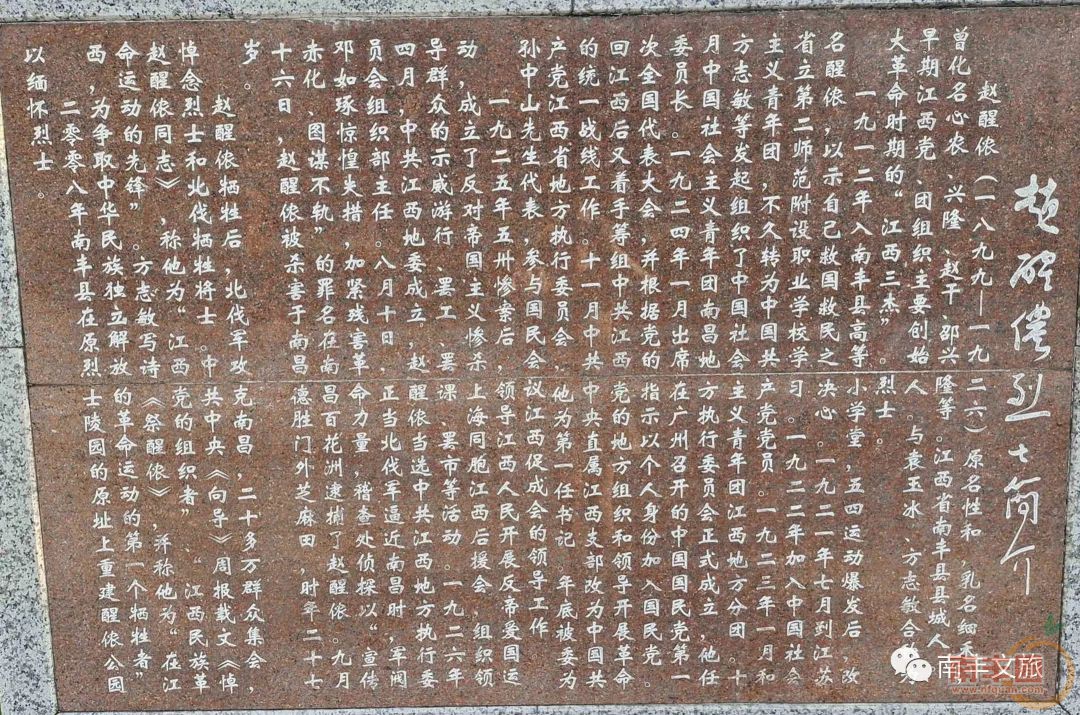 赵醒侬烈士简介
赵醒侬（一八九九—一九二六）原名性和，乳名细禾，
曾化名心农、兴隆、赵干、邵兴隆等。江西省南丰县县城人，
早期江西党、团组织主要创始人、与袁玉冰、方志敏合
大革命时期的“江西三杰”。烈士。
一九一二年入南丰县高等小学堂，五四运动爆发后，改
名醒侬，以示自己救国救民之决心。一九二一年七月到江苏
省立第二师范附设职业学校学习。一九二二年加入中国社会
主义青年团，不久转为中国共产党党员。一九二三年一月和
方志敏等发起组织了中国社会主义青年团江西地方分团。十
月中国社会主义青年团南昌地方执行委员会正式成立，他任
委员长。一九二四年一月出席在广州召开的中国国民党第一
次全国代表大会，并根据党的指示以个人身份加入国民党。
回江西后又着手筹组中共江西党的地方组织和领导开展革命
的统一战线工作。十一月中共中央直属江西支部改为中国共
产党江西省地方执行委员会，他为第一任书记。年底被委为
孙中山先生代表，参与国民会议江西促成会的领导工作
一九二五年五卅惨案后，领导江西人民开展反帝爱国运
动，成立了反对帝国主义惨杀上海同胞江西后援会，组织领
导群众的示威游行、罢工、罢课、罢市等活动。一九二六年
四月，中共江西地委成立，赵醒侬当选中共江西地方执行委
员会组织部主任。八月十日，正当北伐军逼近南昌时，军阀
邓如琢惊惶失措，加紧残害革命力量，稽查处侦探以“宣传
赤化 图谋不轨”的罪名在南昌百花洲逮捕了赵醒侬。九月
十六日，赵醒侬被杀害于南昌德胜门外芝麻田，时年二十七
岁。
赵醒侬牺牲后，北伐军攻克南昌，二十多万群众集会，
悼念烈士和北伐牺牲将士。中共中央《向导》周报载文《悼
赵醒侬同志》，称他为“江西党的组织者”、“江西民族革
命运动的先锋”。方志敏写诗《祭醒侬》，并称他为“在江
西，为争取中华民族独立解放的革命运动的第一个牺牲者”
二零零八年南丰县在原烈士陵园的原址上重建醒侬公园
以缅怀烈士。
南丰文旅